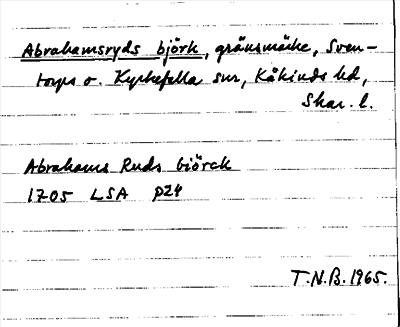 Abrahamsryds björk, gränsmärke, Sven-
torps o. Kyrkefalla snr, Kåkinds hd,
Skar. l.
Abrahams Ruds biörck
1705 LSA P24
T.N.B. 1965.